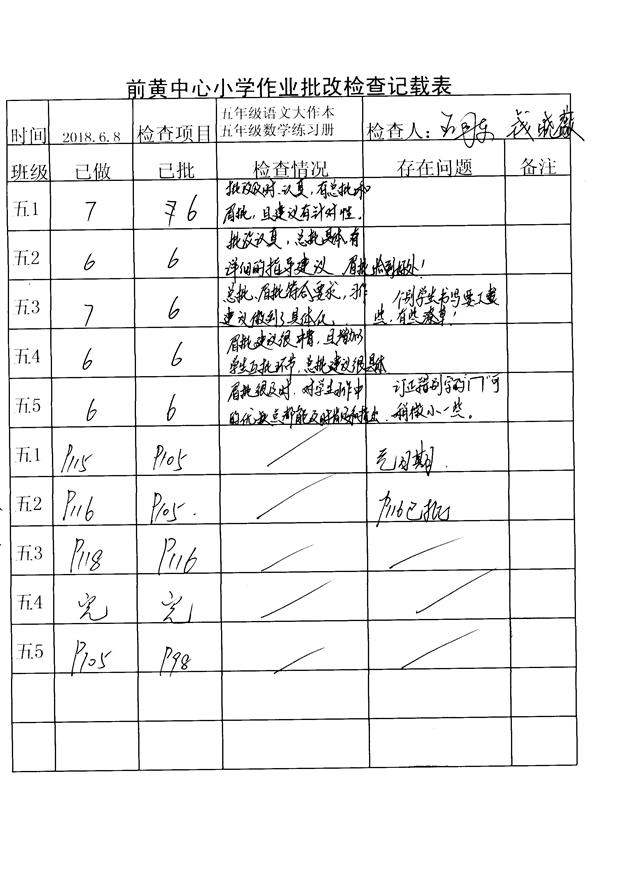 前黄中心小学作业批改检查记载表
时间 2018.6.8 检查项目 五年级语文大作本 五年级数学练习册 检查人：
班级 已做 已批 检查情况 存在问题 备注
五.1 7 6 批改及时、认真，有总批和
眉批，且建议有针对性。
五.2 6 6 批改认真，总批具体有
详细的指导建议 眉批恰到好处！
五.3 7 6 总批、眉批符合要求，习作
建议做到了具体化 个别学生书写要工整
些，有些潦草！
五.4 6 6 眉批建议很中肯，且增加了
学生互批环节，总批建议很具体
五.5 6 6 眉批很及时，对学生习作中
的优缺点都能及时肯定和指出 订正错别字的"「」"可
稍做小一些。
五.1 P115 P105 无日期.
五.2 P116 P105. P116已批
五.3 P118 P116
五.4 完 完
五.5 P105 P98